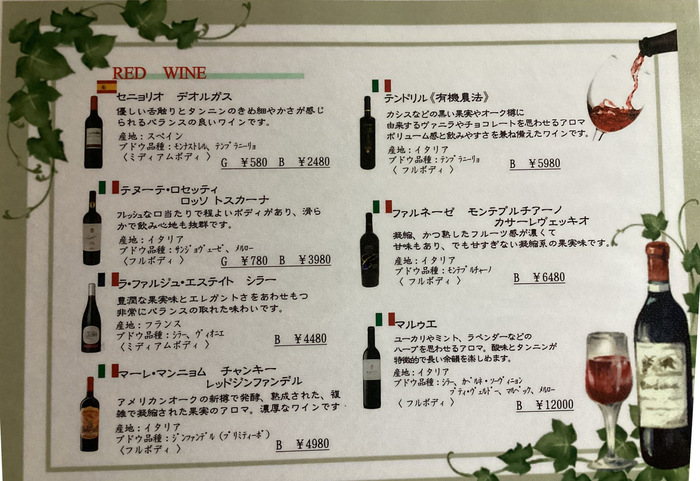 RED WINE
セニョリオ デオルガス
優しい舌触りとタンニンのきめ細やかさが感じ
られるバランスの良いワインです。
産地：スペイン
ブドウ品種：モナストレル、テンプラニーリョ
〈ミディアムボディ 〉
G ￥580 B ￥2480
テヌーテ・ロセッティ
ロッソ トスカーナ
フレッシュな口当たりで程よいボディがあり、滑ら
かで飲み心地も抜群です。
産地：イタリア
ブドウ品種：サンジョヴェーゼ、メルロー
〈フルボディ 〉
G ￥780 B ￥3980
ラ・ファルジュ・エステイト シラー
豊潤な果実味とエレガントさをあわせもつ
非常にバランスの取れた味わいです。
産地：フランス
ブドウ品種：シラー、ヴィオニエ
〈ミディアムボディ 〉
B ￥4480
マーレ・マンニョム チャンキー
レッドジンファンデル
アメリカンオークの新樽で発酵、熟成された、複
雑で凝縮された果実のアロマ。濃厚なワインです
産地：イタリア
ブドウ品種：ジンファンデル（プリミティーボ）
〈フルボディ 〉
B ￥4980
テンドリル《有機農法》
カシスなどの黒い果実やオーク樽に
由来するヴァニラやチョコレートを思わせるアロマ
ボリューム感と飲みやすさを兼ね備えたワインです。
産地：イタリア
ブドウ品種：テンプラニーリョ
〈 フルボディ 〉
B ￥5980
ファルネーゼ モンテプルチアーノ
カサーレヴェッキオ
凝縮、かつ熟したフルーツ感が濃くて
甘味もあり、でも甘すぎない凝縮系の果実味です。
産地：イタリア
ブドウ品種：モンテプルチャーノ
〈 フルボディ 〉
B ￥6480
マルゥエ
ユーカリやミント、ラベンダーなどの
ハーブを思わせるアロマ。酸味とタンニンが
特徴的で長い余韻を楽しめます。
産地：イタリア
ブドウ品種：シラー、カベルネ・ソーヴィニョン
プティ・ヴェルドー、マルベック、メルロー
〈 フルボディ 〉
B ￥12000